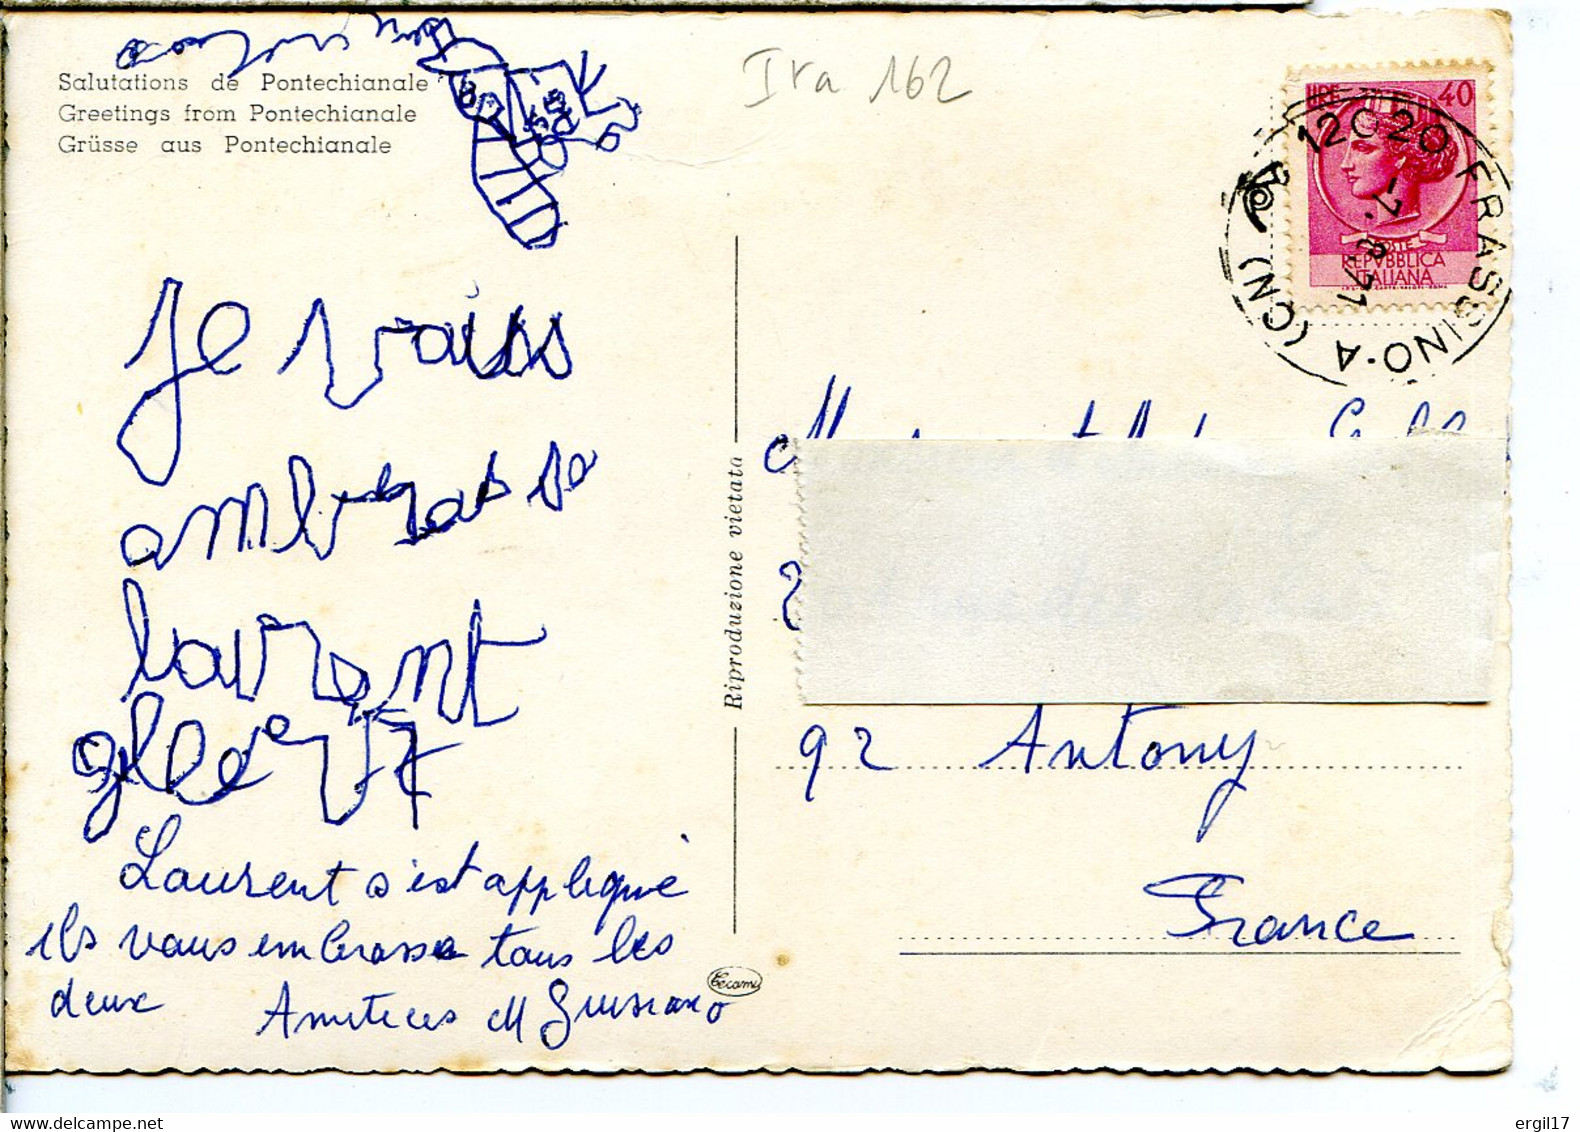 Salutations de Pontechianale
Greetings from Pontechianale
Grüsse aus Pontechianale
Ira 162
LIRE 40
POSTE
REPVBBLICA
ITALIANA
12020 FRASSINO · A (CN)
-7. 8.71
Je vaiss
ambrasse
lavrent
Laurent s'est appliqué
ils vous embrasse tous les
deux Amities M
Riproduzione vietata
92 Antony
France
Tecami
ergil17
www.delcampe.net